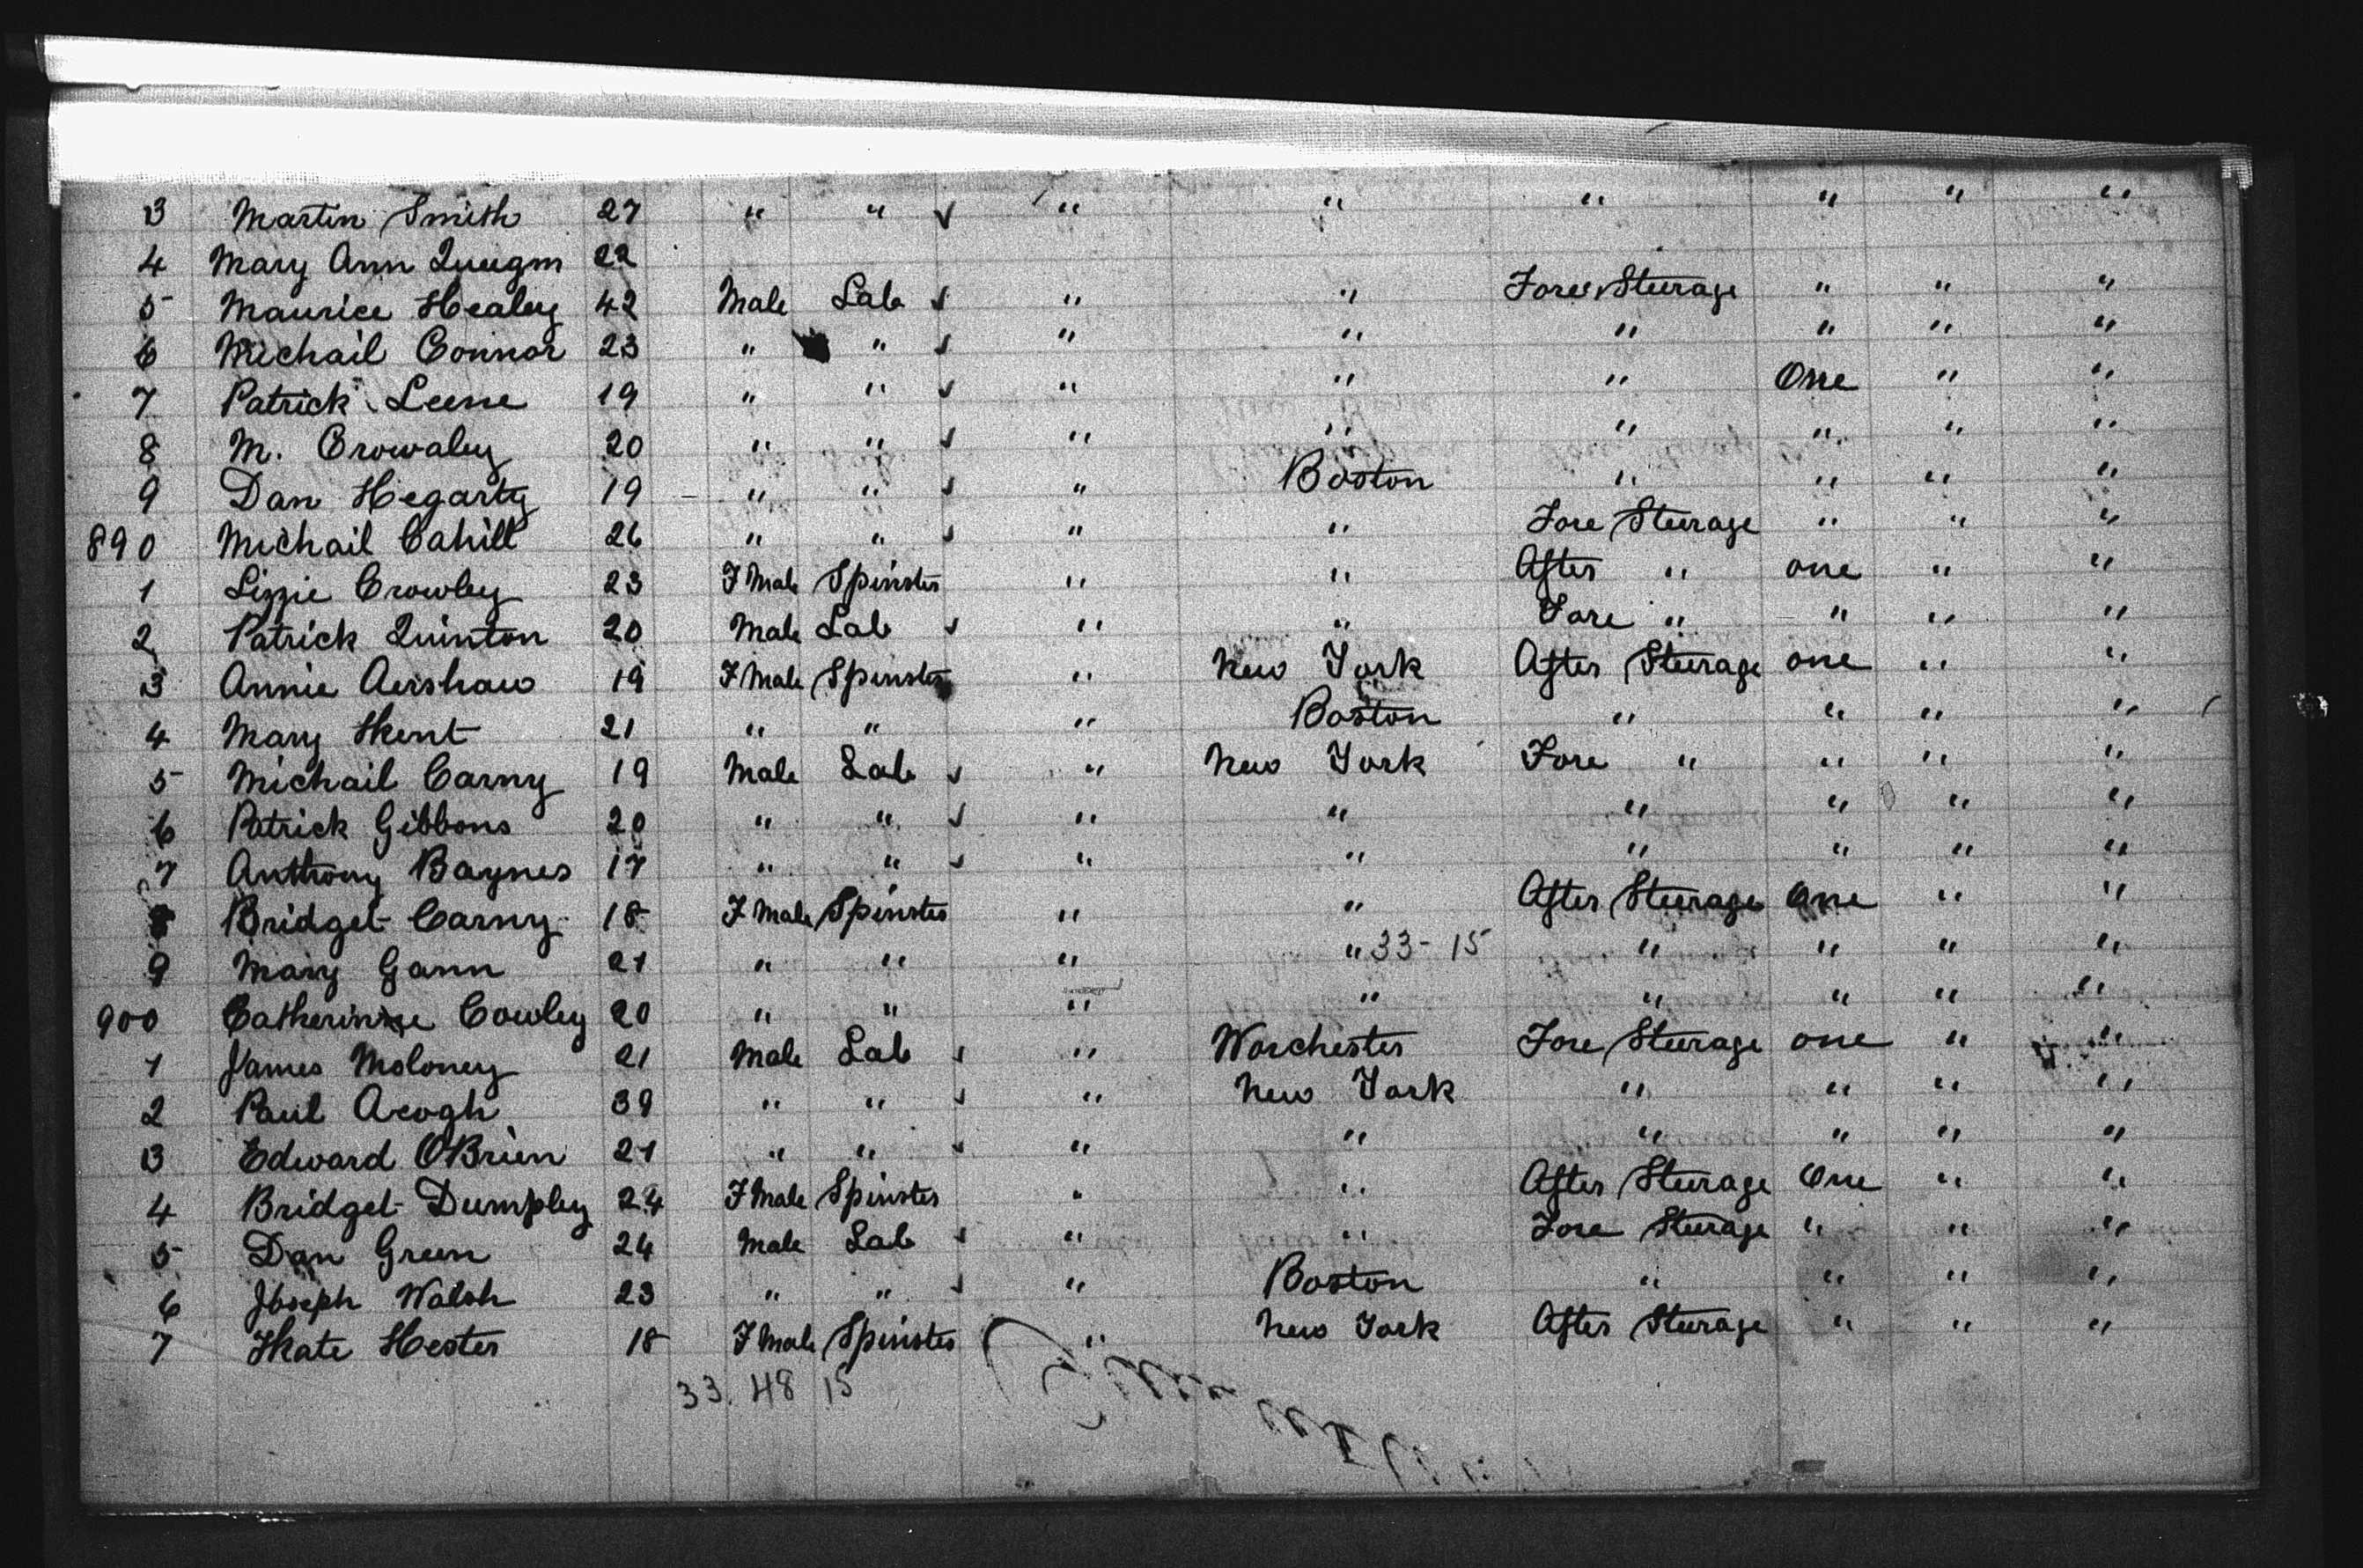 3 Martin Smith 27 " " ✓ " " " " " "
4 Mary Ann 22
5 Maurice Healey 42 Male Lab ✓ " " Fore Steerage " " "
6 Michail Connor 23 " " ✓ " " " " " "
7 Patrick Leene 19 " " ✓ " " " One " "
8 M. Crowaley 20 " " ✓ " " " " " "
9 Dan Hegarty 19 " " ✓ " Boston " " " "
890 Michail Cahill 26 " " ✓ " " Fore Steerage " " "
1 Lizzie Crowley 23 F Male Spinster " " After " one " "
2 Patrick Quinton 20 Male Lab ✓ " " Fore " " " "
3 Annie Aershaw 19 F Male Spinster " New York After Steerage one " "
4 Mary Kent 21 " " " Boston " " " "
5 Michail Carny 19 Male Lab ✓ " New York Fore " " " "
6 Patrick Gibbons 20 " " ✓ " " " " " "
7 Anthony Baynes 17 " " ✓ " " " " " "
8 Bridget Carny 18 F Male Spinster " " After Steerage One " "
9 Mary Gann 21 " " " " 33-15 " " " "
900 Catherine Cowley 20 " " " " " " " "
1 James Moloney 21 Male Lab ✓ " Worchester Fore Steerage one " "
2 Paul Aeogh 39 " " ✓ " New York " " " "
3 Edward O'Brien 21 " " ✓ " " " " " "
4 Bridget Dumpley 24 F Male Spinster " " After Steerage One " "
5 Dan Green 24 Male Lab ✓ " " Fore Steerage " " "
6 Joseph Walsh 23 " " ✓ " Boston " " " "
7 Kate Hester 18 F Male Spinster " New York After Steerage " " "
33. 48 15